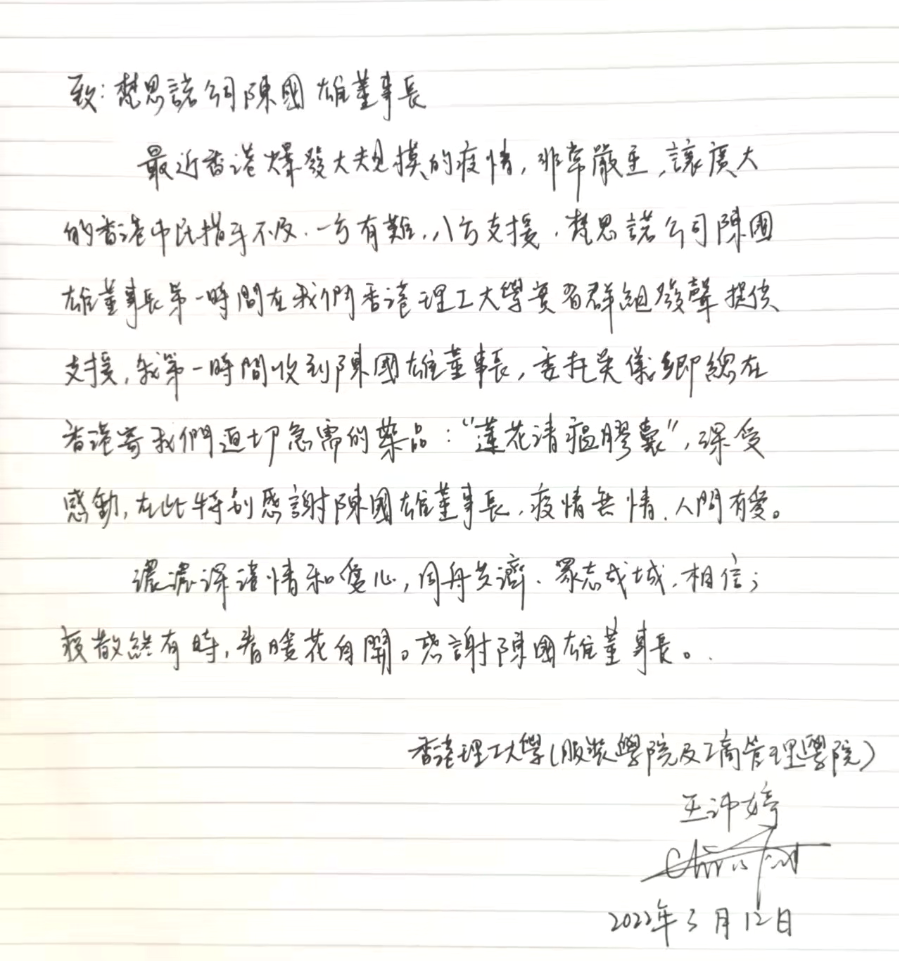 致：梵思諾公司陳國雄董事長
最近香港爆發大規模的疫情，非常嚴重，讓廣大
的香港市民措手不及．一方有難，八方支援，梵思諾公司陳國
雄董事長第一時間在我們香港理工大學莫習群組發聲提供
支援，我第一時間收到陳國雄董事長，委托吳儀卿總在
香港寄我們迫切急需的藥品：“蓮花清瘟膠囊”，深受
感動，在此特別感謝陳國雄董事長，疫情無情，人間有愛。
濃濃深清情和愛心，同舟共濟、眾志成城，相信；
疫散終有時，春暖花自開。感謝陳國雄董事長。
香港理工大學（服裝學院及工商管理學院）
王沛婷
2022年3月12日